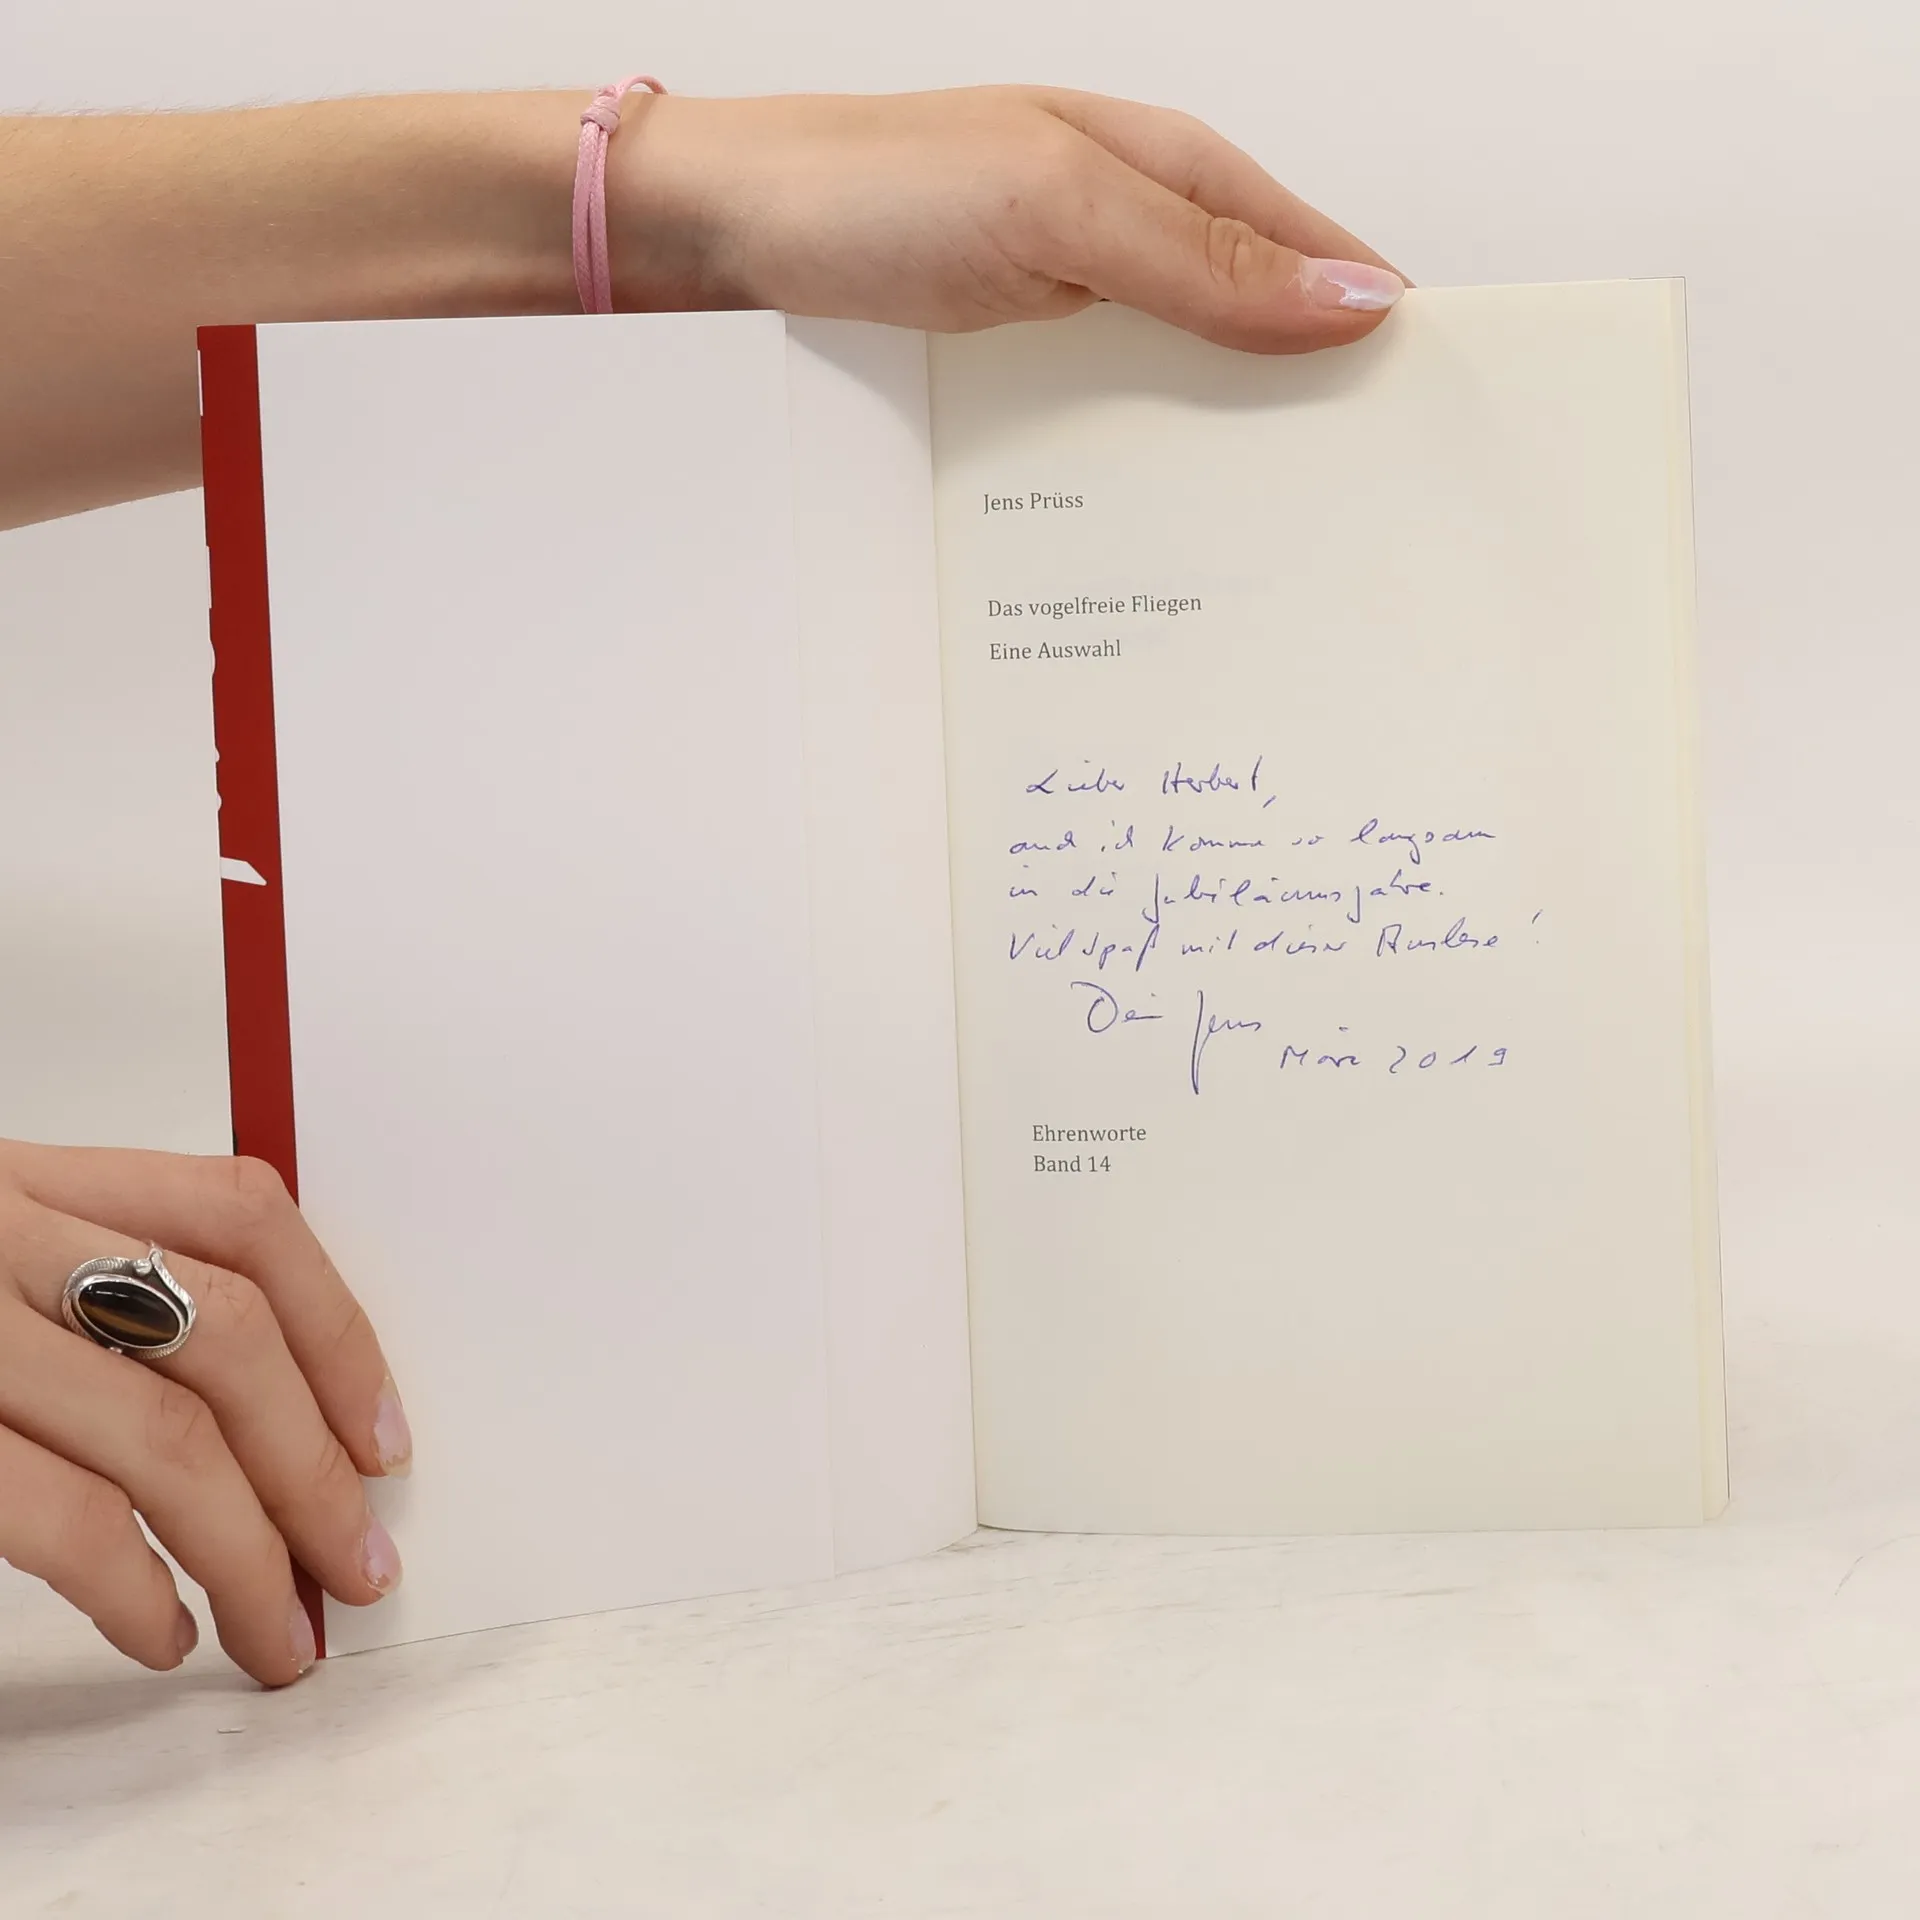 Jens Prüss
Das vogelfreie Fliegen
Eine Auswahl
Lieber Herbert,
auch ich komme so langsam
in die Jubiläumsjahre.
Viel Spaß mit dieser Auslese!
Dein Jens
März 2019
Ehrenworte
Band 14